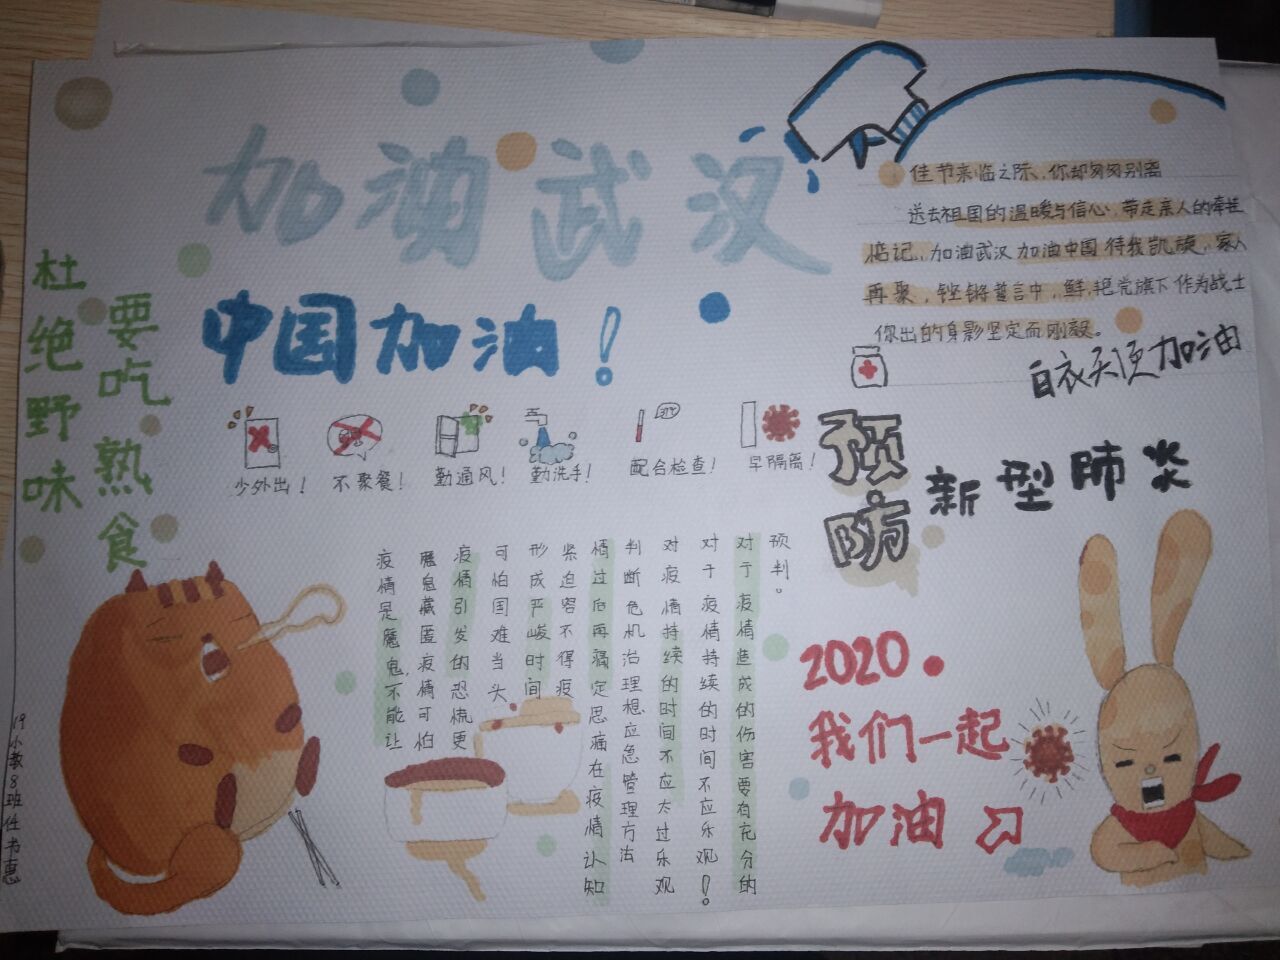 加油武汉
中国加油！
杜绝野味
要吃熟食
佳节来临之际，你却匆匆别离
送去祖国的温暖与信心，带走亲人的牵挂
惦记，加油武汉 加油中国 待我凯旋，家人
再聚，铿锵誓言中，鲜艳党旗下 作为战士
你出的身影坚定而刚毅。
白衣天使加油
少外出！
不聚餐！
勤通风！
勤洗手！
配合检查！
早隔离！
预防
新型肺炎
疫情是魔鬼，不能让
魔鬼藏匿疫情可怕
疫情引发的恐慌更
可怕国难当头
形成严峻时间
紧迫容不得疫
情过后再痛定思痛在疫情认知
判断危机治理想应急管理方法
对疫情持续的时间不应太过乐观
对于疫情持续的时间不应乐观！
对于疫情造成的伤害要有充分的
预判。
2020.
我们一起
加油
19小教8班任书惠